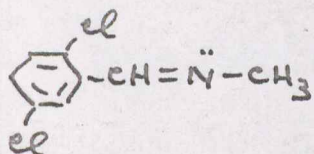 Cl
CH=N̈-CH₃
Cl